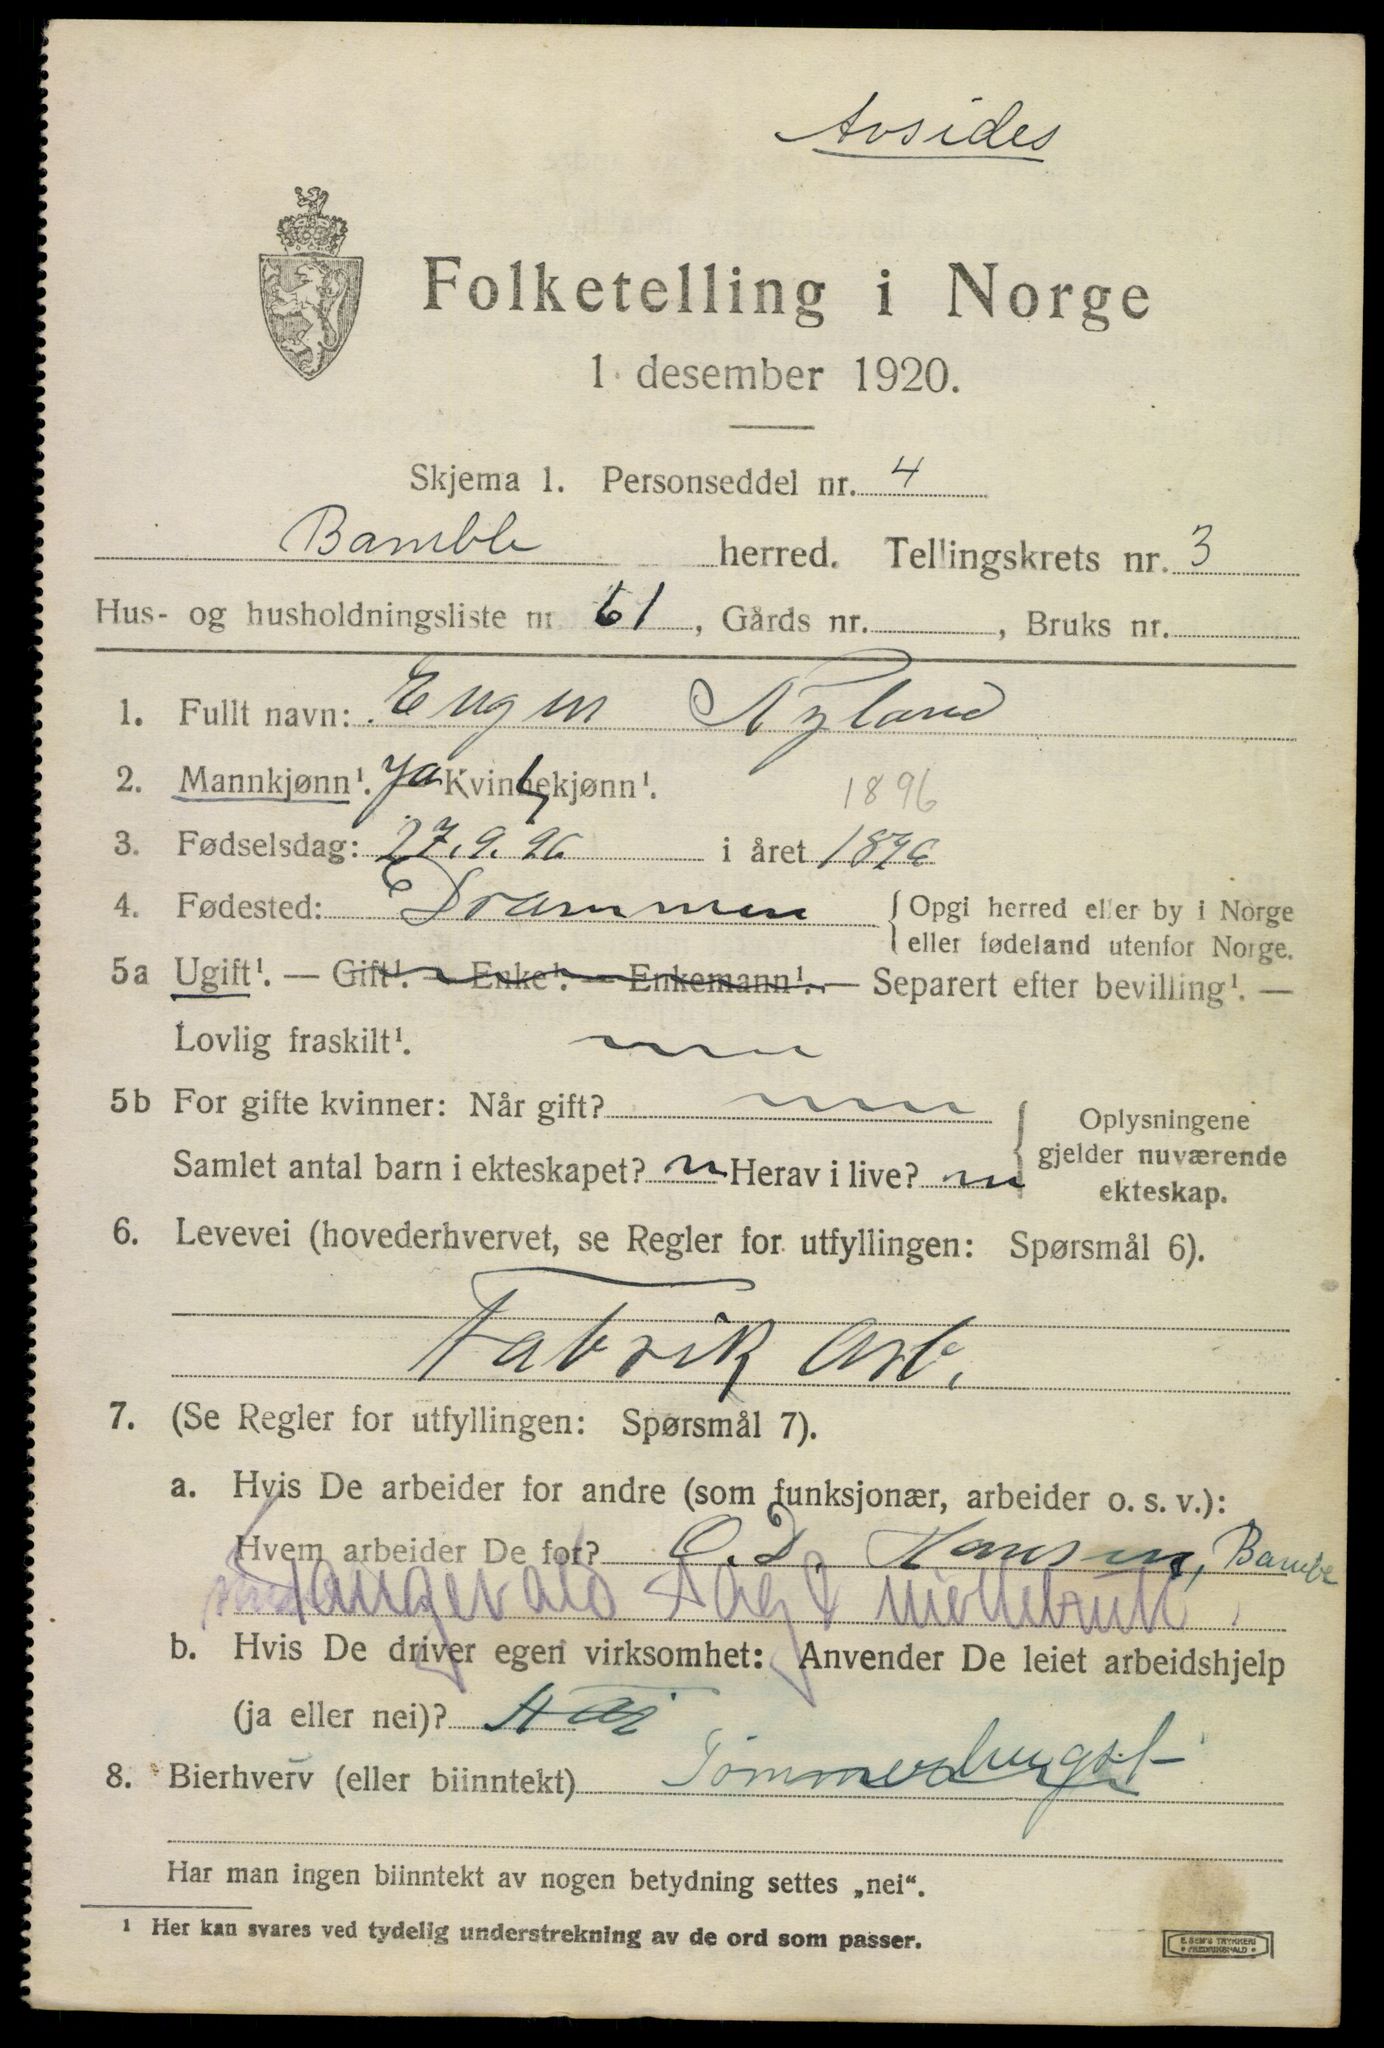 Avsides
Folketelling i Norge
1 desember 1920.
Skjema 1. Personseddel nr. 4
Bamble herred. Tellingskrets nr. 3
Hus- og husholdningsliste nr. 61, Gårds nr. , Bruks nr.
1. Fullt navn: Eugen Nyland
2. Mannkjønn¹. Ja Kvinnekjønn¹.
1896
3. Fødselsdag: 27.9.96 i året 1896
4. Fødested: Drammen { Opgi herred eller by i Norge
eller fødeland utenfor Norge.
5a Ugift¹. — Gift¹. — Enke¹. — Enkemann¹. — Separert efter bevilling¹. —
Lovlig fraskilt¹.
5b For gifte kvinner: Når gift? { Oplysningene
gjelder nuværende
ekteskap.
Samlet antal barn i ekteskapet? Herav i live?
6. Levevei (hovederhvervet, se Regler for utfyllingen: Spørsmål 6).
Fabrik Arb.
7. (Se Regler for utfyllingen: Spørsmål 7).
a. Hvis De arbeider for andre (som funksjonær, arbeider o. s. v.):
Hvem arbeider De for? O. D. Hansen, Bamble
Sag &
b. Hvis De driver egen virksomhet: Anvender De leiet arbeidshjelp
(ja eller nei)?
8. Bierhverv (eller biinntekt)
Har man ingen biinntekt av nogen betydning settes „nei“.
¹ Her kan svares ved tydelig understrekning av de ord som passer.
E. SEM'S TRYKKERI
• FREDRIKSHALD •